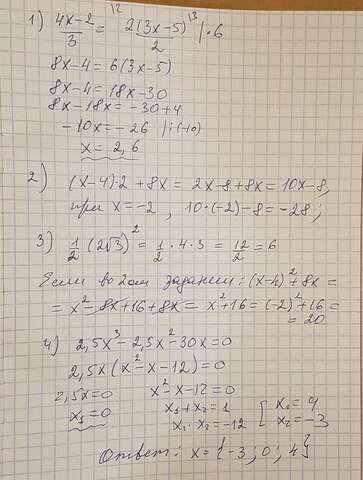 1) (4x-2)/3 =^{\2} 2(3x-5)^{\3}/2 | · 6
8x-4 = 6(3x-5)
8x-4 = 18x-30
8x-18x = -30+4
-10x = -26 |:(-10)
x = 2,6
2) (x-4)·2 + 8x = 2x-8+8x = 10x-8,
при x=-2 , 10·(-2)-8=-28;
3) 1/2 (2√3)² = 1/2 · 4 · 3 = 12/2 = 6
Если во 2ом задании: (x-4)²+8x =
= x²-8x+16+8x = x²+16 = (-2)²+16 =
= 20
4) 2,5x³-2,5x²-30x=0
2,5x(x²-x-12)=0
2,5x=0 x²-x-12=0
x₁=0 x₁+x₂=1 [ x₁=4
x₁·x₂=-12 x₂=-3
Ответ: x={-3; 0; 4}